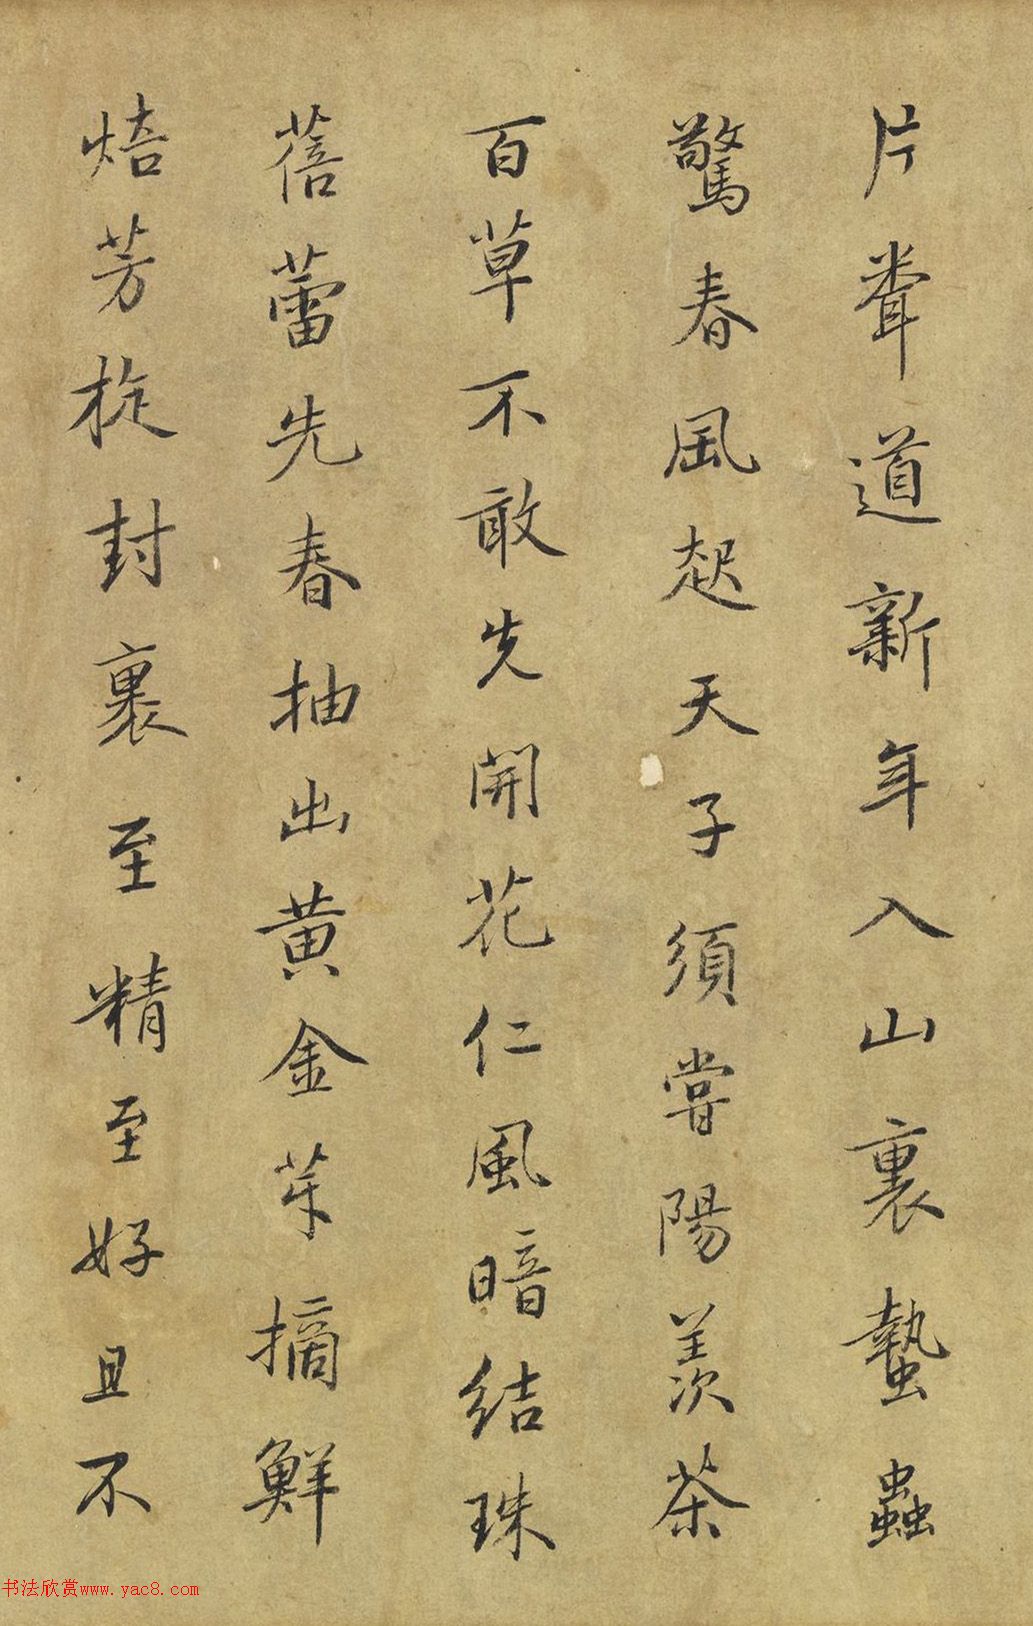 片聞道新年入山裏蟄蟲
驚春風起天子須嘗陽羨茶
百草不敢先開花仁風暗結珠
蓓蕾先春抽出黄金芽摘鮮
焙芳旋封裹至精至好且不
书法欣赏www.yac8.com